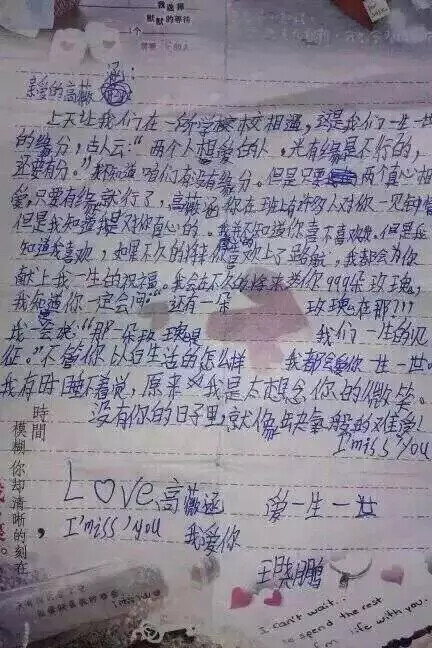 我选择
默默的等待
亲爱的高薇涵:
上天让我们在一所学校校相遇,这是我们一生一世
的缘分,古人云:“两个人想爱的人。光有缘是不行的,
还要有分。”我知道咱们有没有缘分。但是只要两个真心相
爱,只要有缘就行了,高薇涵你在班上有许多人对你一见钟情
但是我知道我是对你真心的。我并不知道你喜不喜欢我。但是我
知道我喜欢,如果不久的将来你喜欢上了路航,我都会为你
献上我一生的祝福。我会在不久的将来送你999朵玫瑰,
我知道你一定会问:“还有一朵玫瑰在那???
我会说:“那一朵玫瑰是我们一生的见
征。”不管你以后生活的怎么样 我都会爱你一生一世。
我有时睡不着觉,原来是我是太想念你的微笑。
没有你的日子里,就像缺氧般的难受!
I'miss'you
Love 高薇涵 爱一生一世
I'miss'you 我爱你
王晓鹏
時間,
模糊你却清晰的刻在
I can't wait...
to spend the rest
of my life with you.